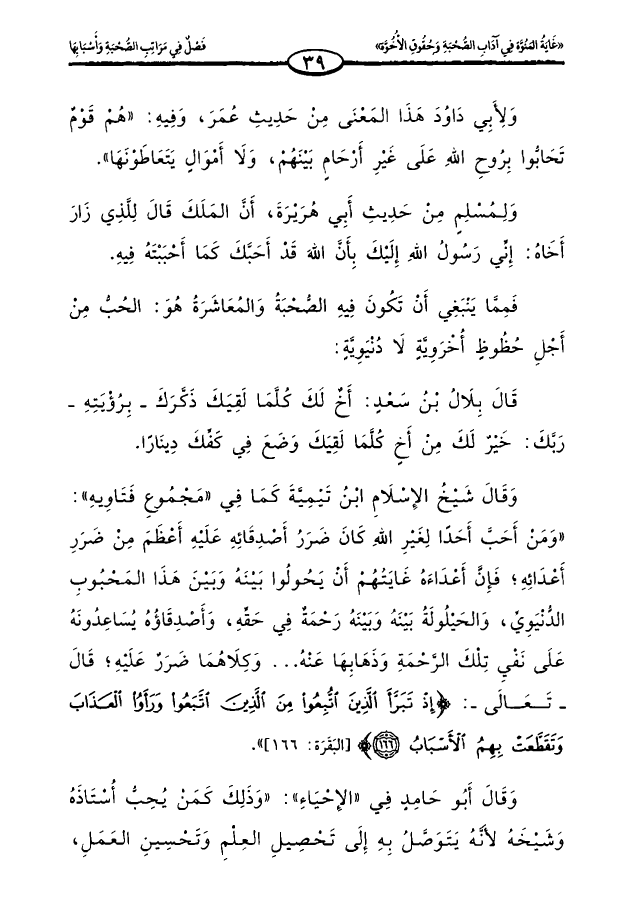 «غَايَةُ المُنُوَّة فِي آدَابِ الصُّحْبَةِ وَحُقُوقِ الأُخُوَّة» فَصْلٌ فِي مَرَاتِبِ الصُّحْبَةِ وَأَسْبَابِهَا
٣٩
وَلِأَبِي دَاوُدَ هَذَا المَعْنَى مِنْ حَدِيثِ عُمَرَ، وَفِيهِ: «هُمْ قَوْمٌ
تَحَابُّوا بِرُوحِ اللهِ عَلَى غَيْرِ أَرْحَامٍ بَيْنَهُمْ، وَلَا أَمْوَالٍ يَتَعَاطَوْنَهَا».
وَلِمُسْلِمٍ مِنْ حَدِيثِ أَبِي هُرَيْرَةَ، أَنَّ المَلَكَ قَالَ لِلَّذِي زَارَ
أَخَاهُ: إِنِّي رَسُولُ اللهِ إِلَيْكَ بِأَنَّ اللهَ قَدْ أَحَبَّكَ كَمَا أَحْبَبْتَهُ فِيهِ.
فَمِمَّا يَنْبَغِي أَنْ تَكُونَ فِيهِ الصُّحْبَةُ وَالمُعَاشَرَةُ هُوَ: الحُبُّ مِنْ
أَجْلِ حُظُوظٍ أُخْرَوِيَّةٍ لَا دُنْيَوِيَّةٍ:
قَالَ بِلَالُ بْنُ سَعْدٍ: أَخٌ لَكَ كُلَّمَا لَقِيَكَ ذَكَّرَكَ ـ بِرُؤْيَتِهِ ـ
رَبَّكَ: خَيْرٌ لَكَ مِنْ أَخٍ كُلَّمَا لَقِيَكَ وَضَعَ فِي كَفِّكَ دِينَارًا.
وَقَالَ شَيْخُ الإِسْلَامِ ابْنُ تَيْمِيَّةَ كَمَا فِي «مَجْمُوعِ فَتَاوِيهِ»:
«وَمَنْ أَحَبَّ أَحَدًا لِغَيْرِ اللهِ كَانَ ضَرَرُ أَصْدِقَائِهِ عَلَيْهِ أَعْظَمَ مِنْ ضَرَرِ
أَعْدَائِهِ؛ فَإِنَّ أَعْدَاءَهُ غَايَتُهُمْ أَنْ يَحُولُوا بَيْنَهُ وَبَيْنَ هَذَا المَحْبُوبِ
الدُّنْيَوِيِّ، وَالحَيْلُولَةُ بَيْنَهُ وَبَيْنَهُ رَحْمَةٌ فِي حَقِّهِ، وَأَصْدِقَاؤُهُ يُسَاعِدُونَهُ
عَلَى نَفْيِ تِلْكَ الرَّحْمَةِ وَذَهَابِهَا عَنْهُ... وَكِلَاهُمَا ضَرَرٌ عَلَيْهِ؛ قَالَ
ـ تَـعَـالَى ـ: ﴿إِذْ تَبَرَّأَ ٱلَّذِينَ ٱتُّبِعُوا۟ مِنَ ٱلَّذِينَ ٱتَّبَعُوا۟ وَرَأَوُا۟ ٱلْعَذَابَ
وَتَقَطَّعَتْ بِهِمُ ٱلْأَسْبَابُ ۝١٦٦﴾ [البَقَرَة: ١٦٦]».
وَقَالَ أَبُو حَامِدٍ فِي «الإِحْيَاءِ»: «وَذَلِكَ كَمَنْ يُحِبُّ أُسْتَاذَهُ
وَشَيْخَهُ لأَنَّهُ يَتَوَصَّلُ بِهِ إِلَى تَحْصِيلِ العِلْمِ وَتَحْسِينِ العَمَلِ،